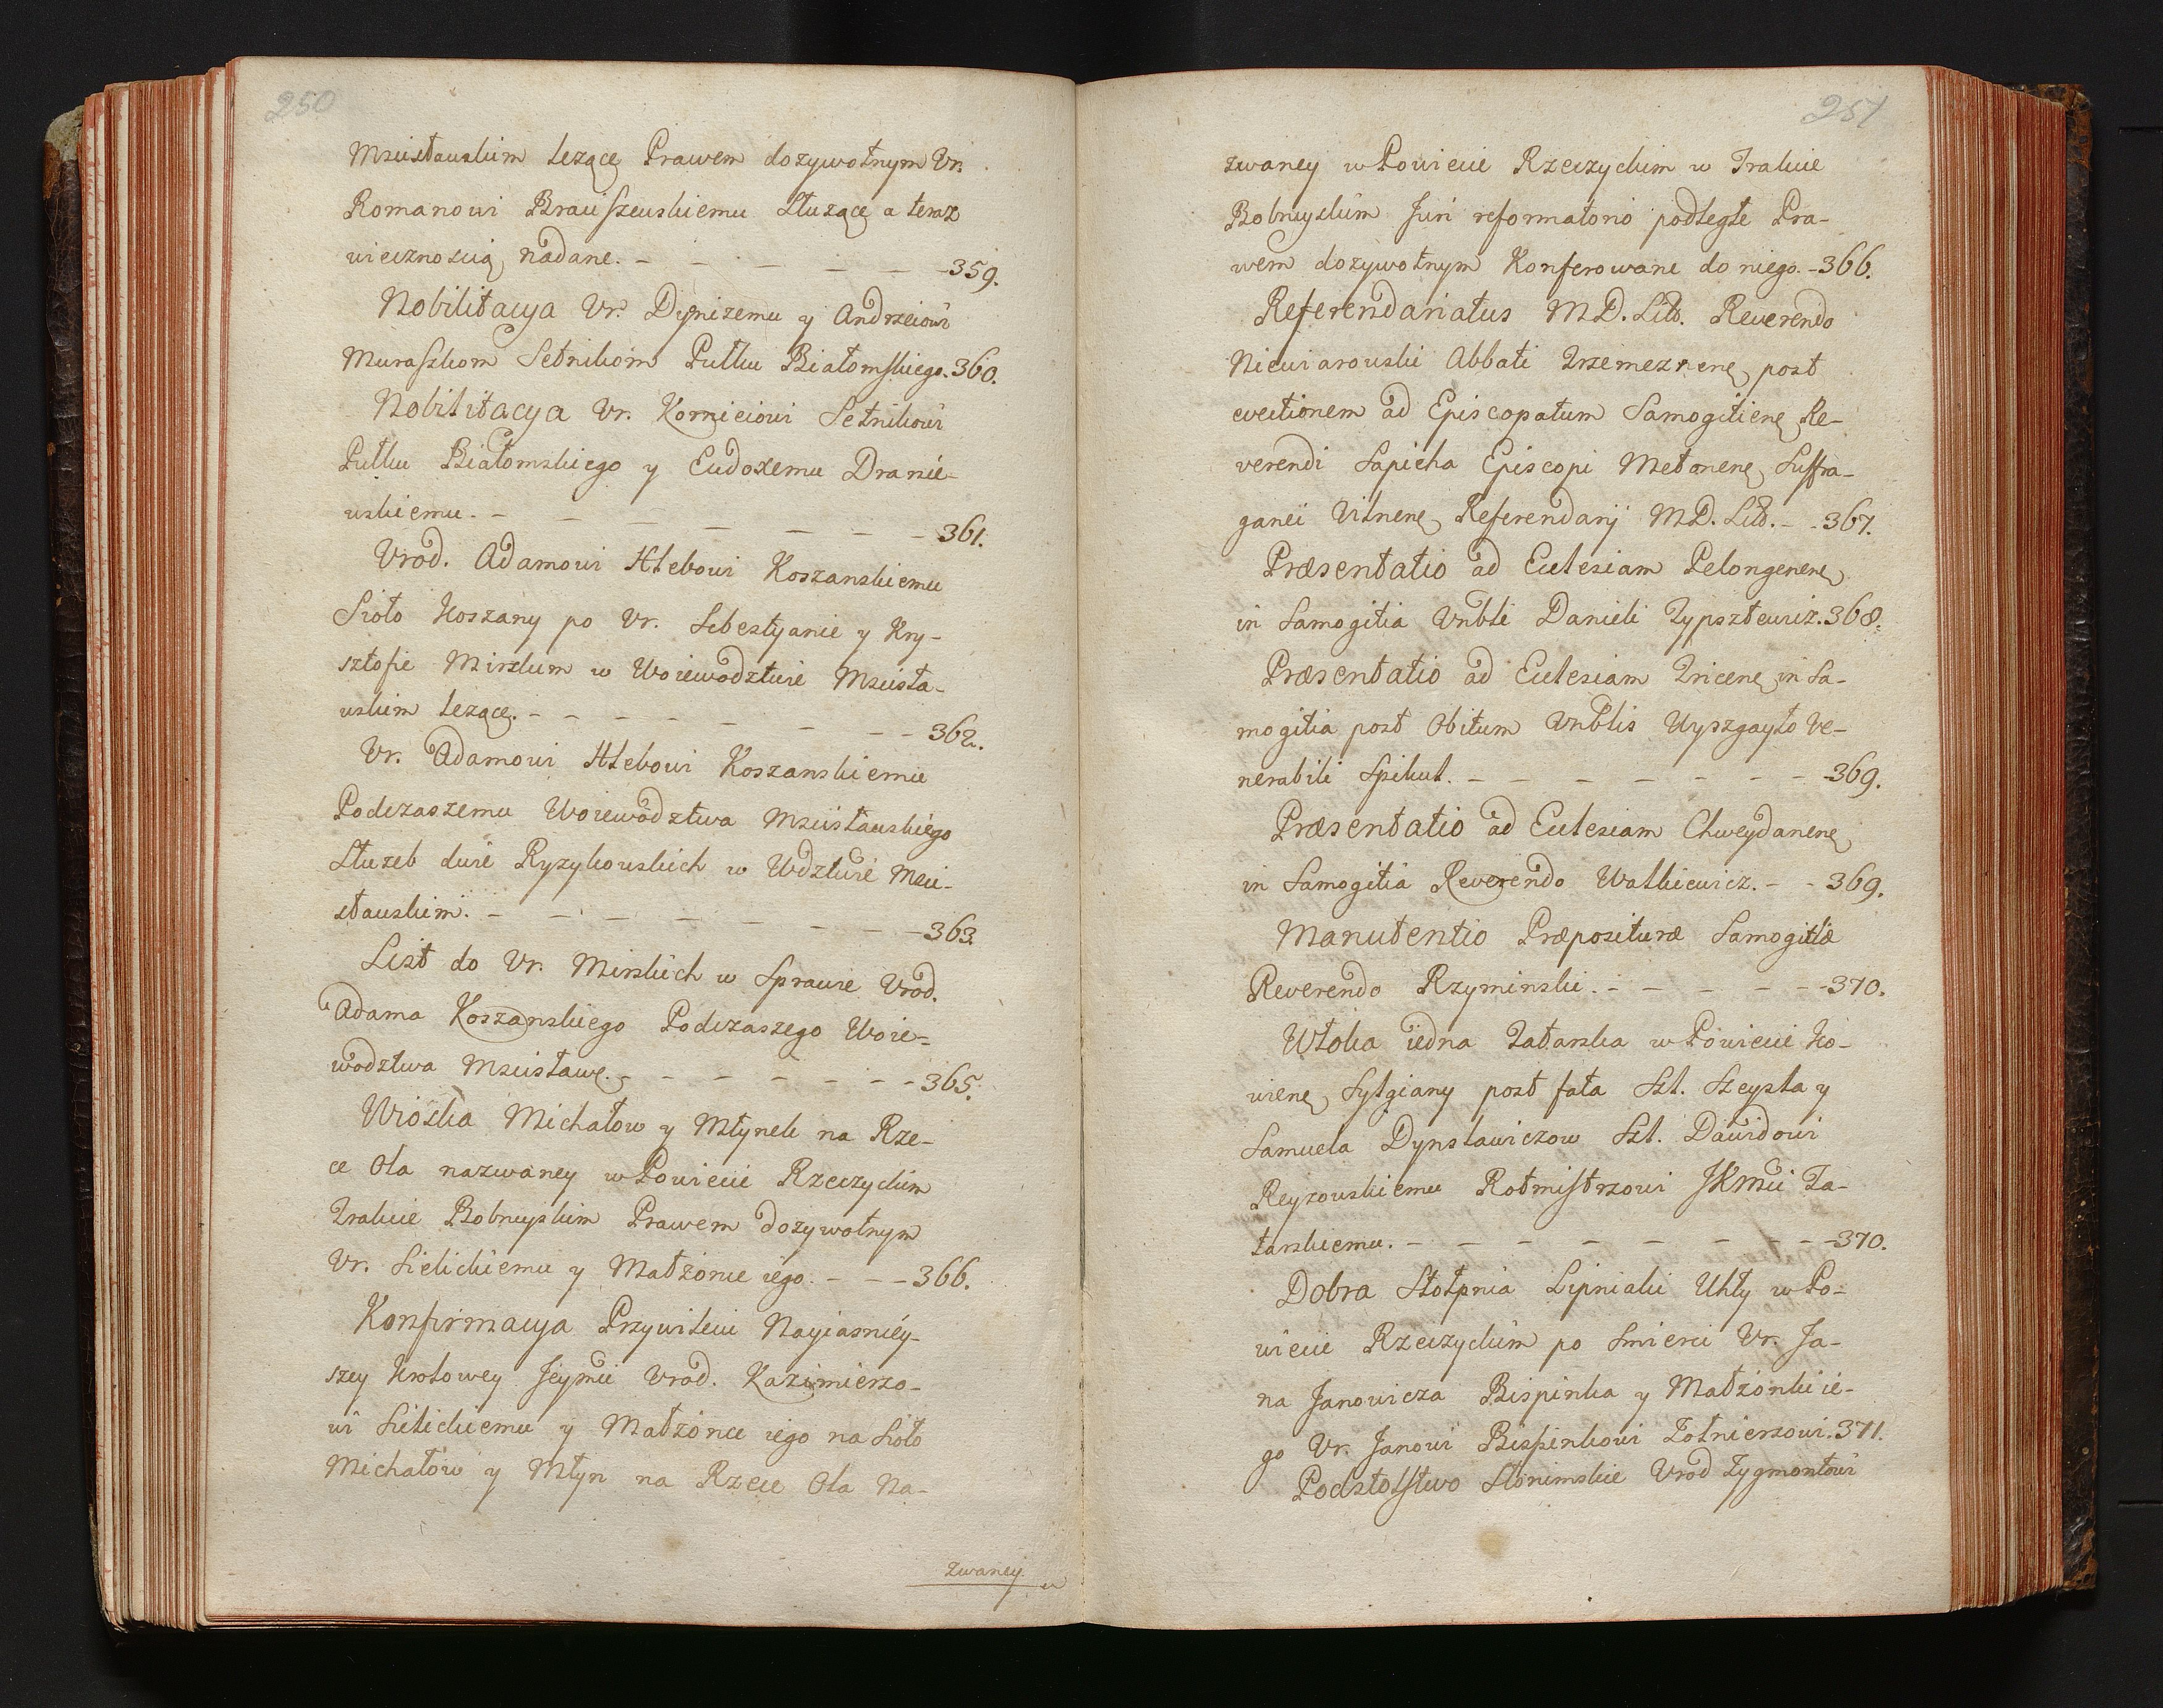 250
Mscisławskim leżące Prawem dozywotnym Ur.
Romanowi Brauszewskiemu Służące a teraz
wiecznoscią nadane. - - - - - - 359.
Nobilitacya Ur. Dynizemu y Andrzeiowi
Muraszkom Setnikom Pułku Białomskiego. 360.
Nobilitacya Ur. Korniciowi Setnikowi
Pułku Białomskiego y Eudoxemu Dranie-
wskiemu. - - - - - - - 361.
Urod. Adamowi Hlebowi Koszanskiemu
Sioło Koszany po Ur. Sebestyanie y Kry-
sztofie Mirskim w Woiewodztwie Mscisła-
wskim leżące. - - - - - - - 362.
Ur. Adamowi Hlebowi Koszanskiemu
Podczaszemu Woiewodztwa Mscisławskiego
Służeb dwie Ryzykowskich w Wdztwie Msci-
sławskim. - - - - - - - 363.
List do Ur. Mirskich w Sprawie Urod.
Adama Koszanskiego Podczaszego Woie-
wodztwa Mscisławs. - - - - - - - 365.
Wioska Michałow y Młynek na Rze-
ce Ola nazwaney w Powiecie Rzeczyckim
Trakcie Bobruyskim Prawem dozywotnym
Ur. Sielickiemu y Małżonce iego. - - - 366.
Konfirmacya Przywileiu Nayiasniey-
szey Krolowey Jeymci Urod. Kazimierzo-
wi Sielickiemu y Małżonce iego na Sioło
Michałow y Młyn na Rzece Ola Na-
zwaney w
251
zwaney w Powiecie Rzeczyckim w Trakcie
Bobruyskim Juri reformatorio podległe Pra-
wem dozywotnym Konferowane do niego. - 366.
Referendariatus M.D. Litt. Reverendo
Niewiarowski Abbati Trzemeznens post
evectionem ad Episcopatum Samogitiens Re-
verendi Sapieha Episcopi Metonens Suffra-
ganei Vilnens Referendarij M.D. Litt. - - 367.
Præsentatio ad Ecclesiam Pelongenens
in Samogitia Vnbli Danieli Zypsztewicz. 368.
Præsentatio ad Ecclesiam Tricens in Sa-
mogitia post Obitum Vnblis Wyszgayło Ve-
nerabili Spikut. - - - - - - - 369.
Præsentatio ad Ecclesiam Chweydanens
in Samogitia Reverendo Watkiewicz. - - 369.
Manutentio Præposituræ Samogitiæ
Reverendo Rzyminski. - - - - - - 370.
Włoka iedna Tatarska w Powiecie Ko-
wiens Sylgiany post fata Szl. Szeyska y
Samuela Dynslawiczow Szl. Dawidowi
Reyzowskiemu Rotmistrzowi JKmci Ta-
tarskiemu. - - - - - - - - 370.
Dobra Stołpnia Lipniaki Uhły w Po-
wiecie Rzeczyckim po Smierci Ur. Ja-
na Janowicza Bispinka y Małżonki ie-
go Ur. Janowi Bispinkowi Żołnierzowi. 371.
Podstolstwo Słonimskie Urod Zygmontowi